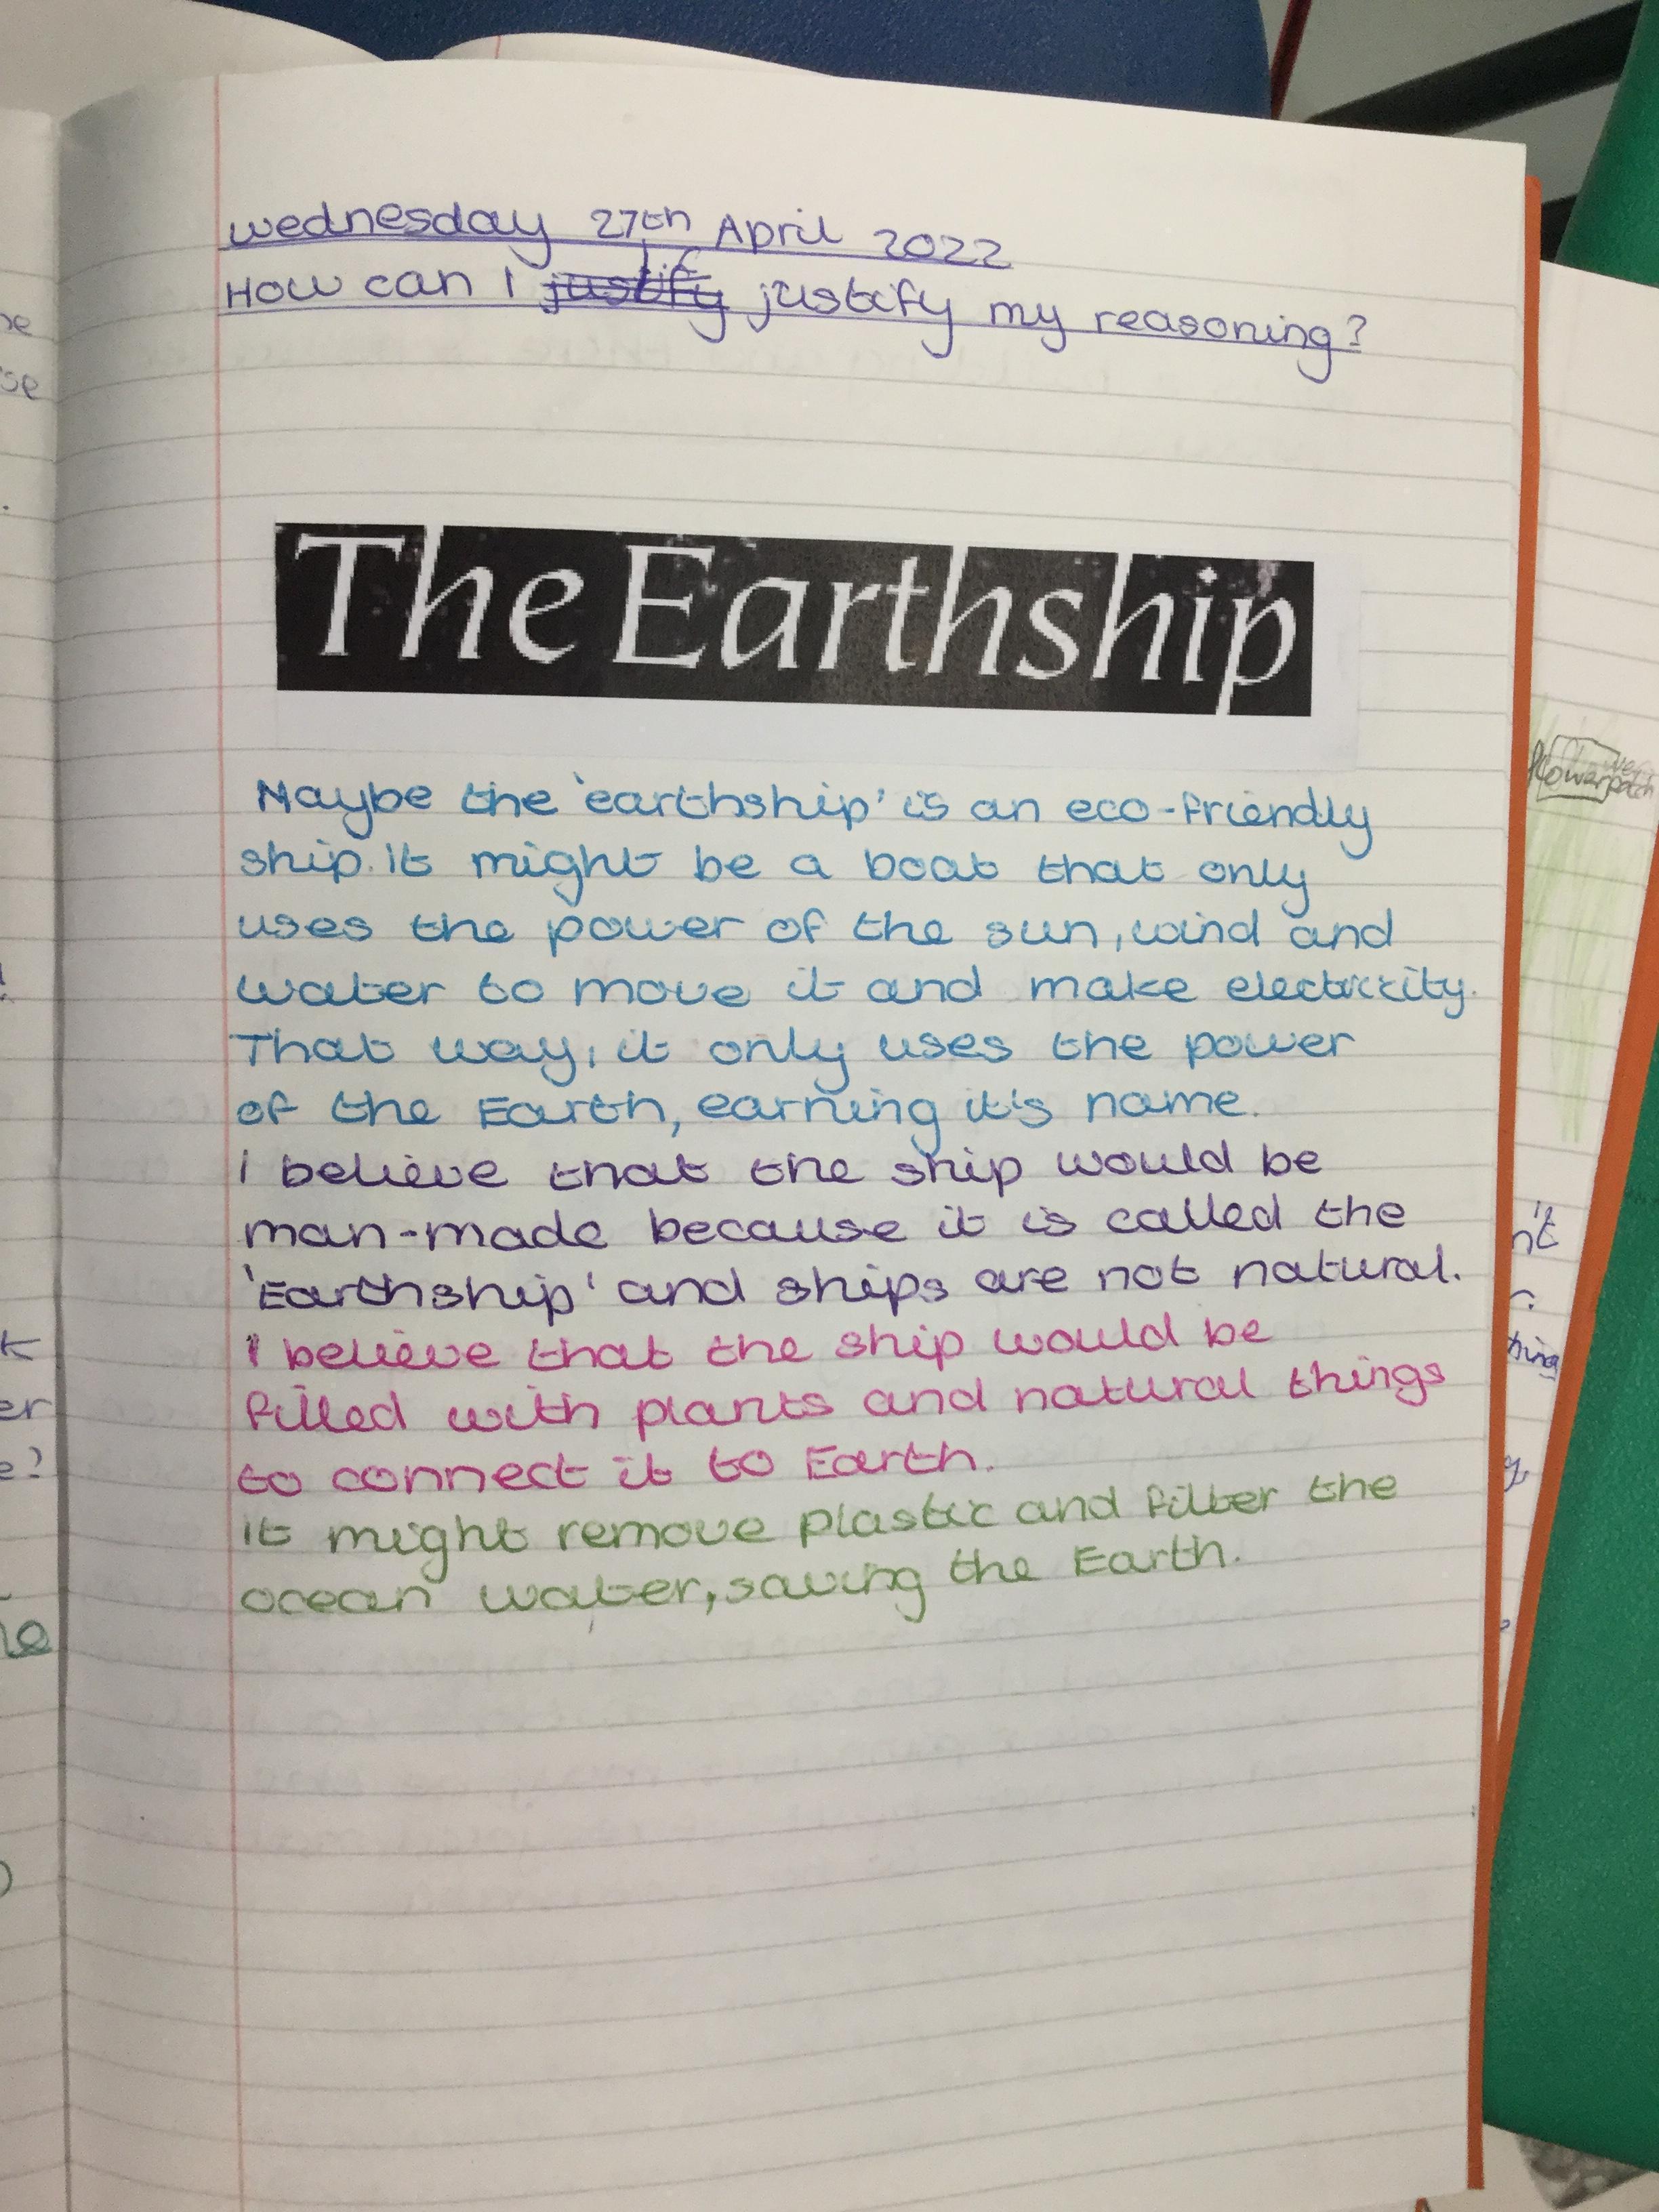 Wednesday 27th April 2022
How can I justify justify my reasoning?
The Earthship
Maybe the 'earthship' is an eco-friendly
ship. It might be a boat that only
uses the power of the sun, wind and
water to move it and make electricity.
That way, it only uses the power
of the Earth, earning it's name.
I believe that the ship would be
man-made because it is called the
'Earthship' and ships are not natural.
I believe that the ship would be
filled with plants and natural things
to connect it to Earth.
It might remove plastic and filter the
ocean water, saving the Earth.